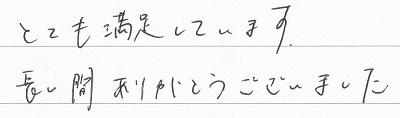 とても満足しています.
長い間ありがとうございました